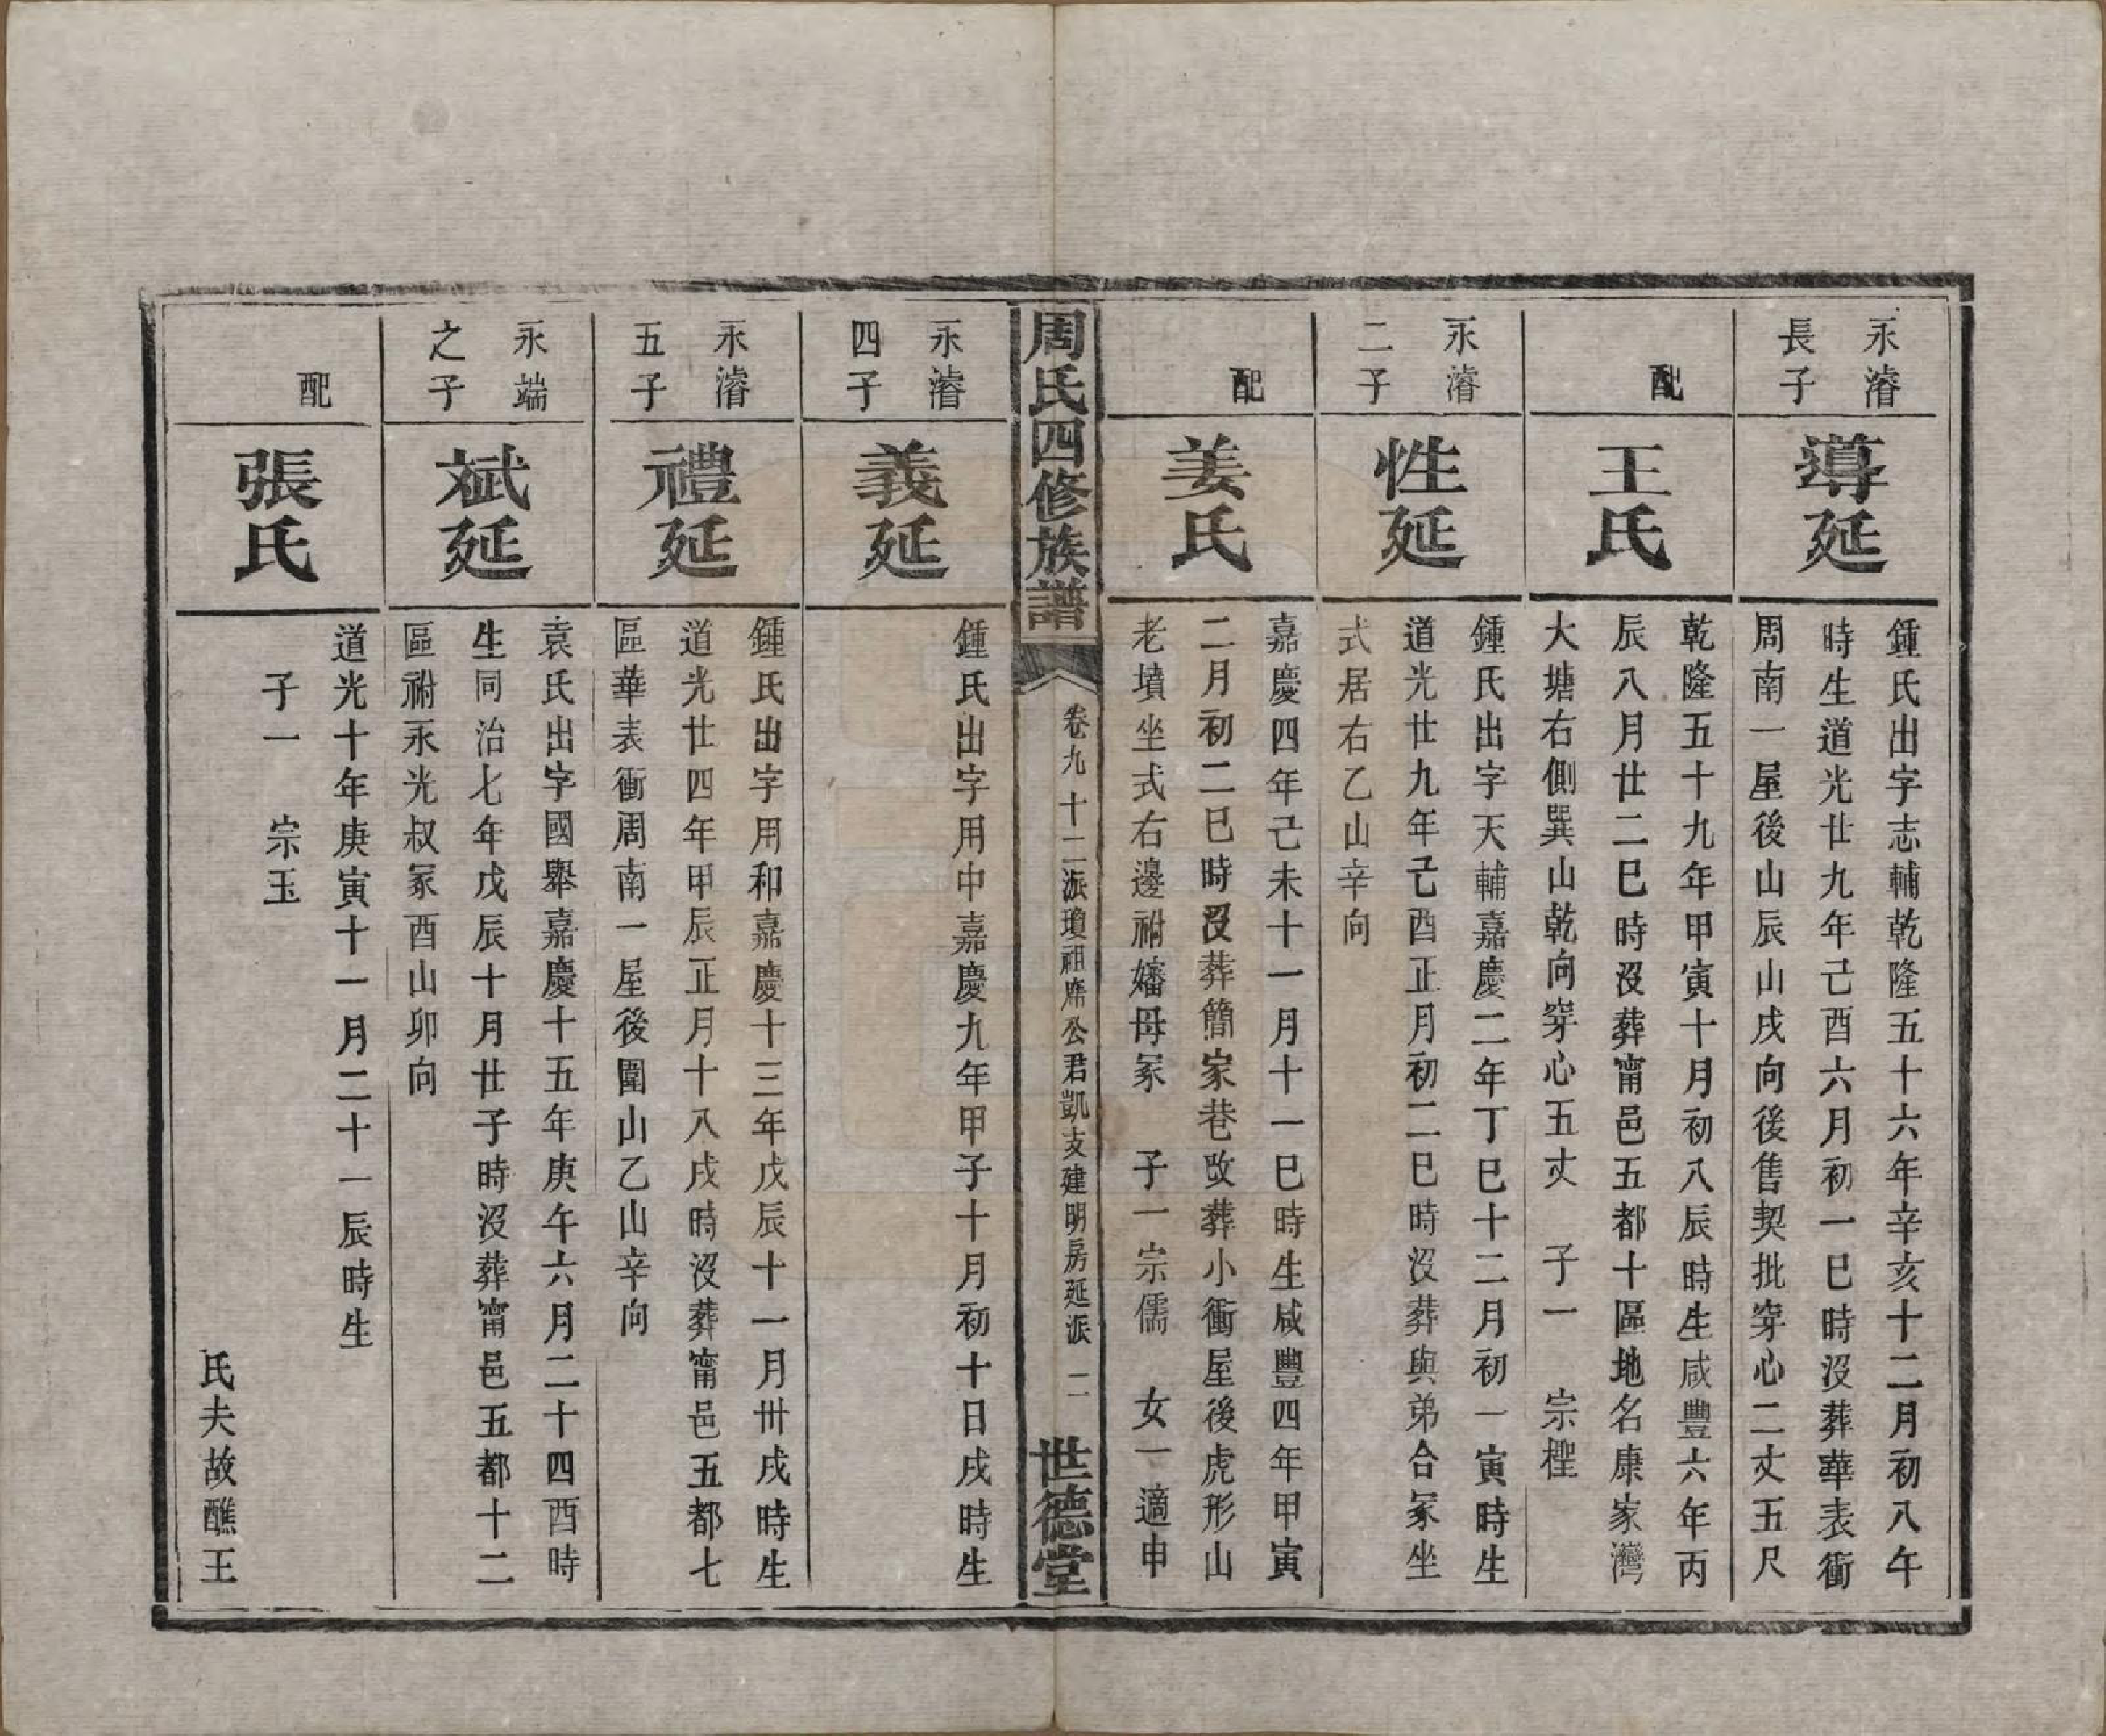 永濬
長子
導延
鍾氏出字志輔乾隆五十六年辛亥十二月初八午
時生道光廿九年己酉六月初一巳時沒葬華表衝
周南一屋後山辰山戌向後售契批穿心二丈五尺
配
王氏
乾隆五十九年甲寅十月初八辰時生咸豐六年丙
辰八月廿二巳時沒葬甯邑五都十區地名康家灣
大塘右側巽山乾向穿心五丈　子一　宗檉
永濬
二子
性延
鍾氏出字天輔嘉慶二年丁巳十二月初一寅時生
道光廿九年己酉正月初二巳時沒葬與弟合冢坐
式居右乙山辛向
配
姜氏
嘉慶四年己未十一月十一巳時生咸豐四年甲寅
二月初二巳時沒葬簡家巷改葬小衝屋後虎形山
老墳坐式右邊祔嬸母冢　子一宗儒　女一適申
周氏四修族譜
卷九十二派瓊祖席公君凱支建明房延派　二
世德堂
永濬
四子
義延
鍾氏出字用中嘉慶九年甲子十月初十日戌時生
永濬
五子
禮延
鍾氏出字用和嘉慶十三年戊辰十一月卅戌時生
道光廿四年甲辰正月十八戌時沒葬甯邑五都七
區華表衝周南一屋後圍山乙山辛向
永端
之子
斌延
袁氏出字國舉嘉慶十五年庚午六月二十四酉時
生同治七年戊辰十月廿子時沒葬甯邑五都十二
區祔永光叔冢酉山卯向
配
張氏
道光十年庚寅十一月二十一辰時生
子一　宗玉
氏夫故醮王